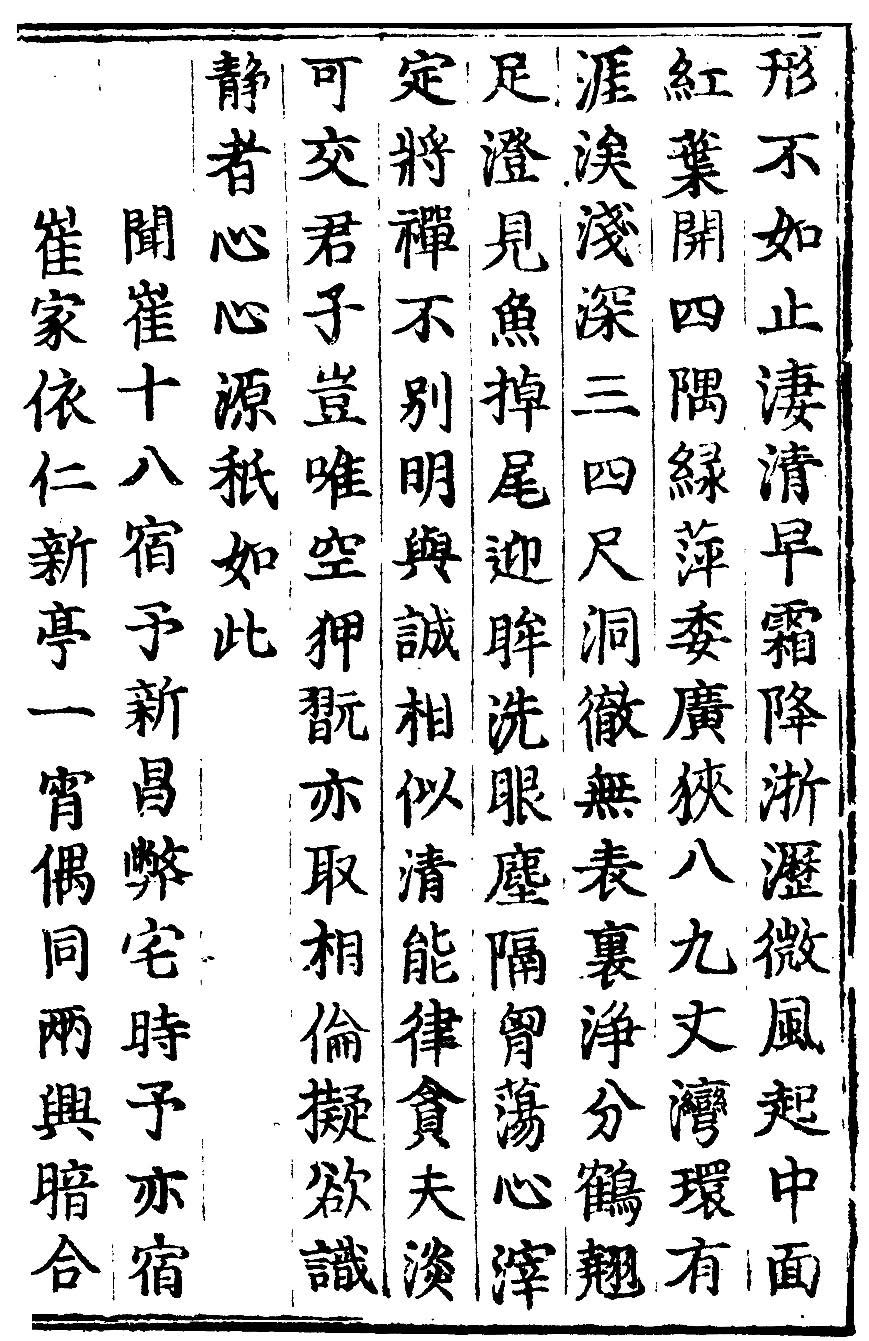 形不如止淒清早霜降淅瀝微風起中面
紅葉開四隅緑萍委廣狹八九丈灣環有
涯涘淺深三四尺洞徹無表裏浄分鶴翹
足澄見魚掉尾迎眸洗眼塵隔胷蕩心滓
定將禪不别明與誠相似清能律貪夫淡
可交君子豈唯空狎翫亦取相倫擬欲識
静者心心源秖如此
聞崔十八宿予新昌弊宅時予亦宿
崔家依仁新亭一宵偶同兩興暗合